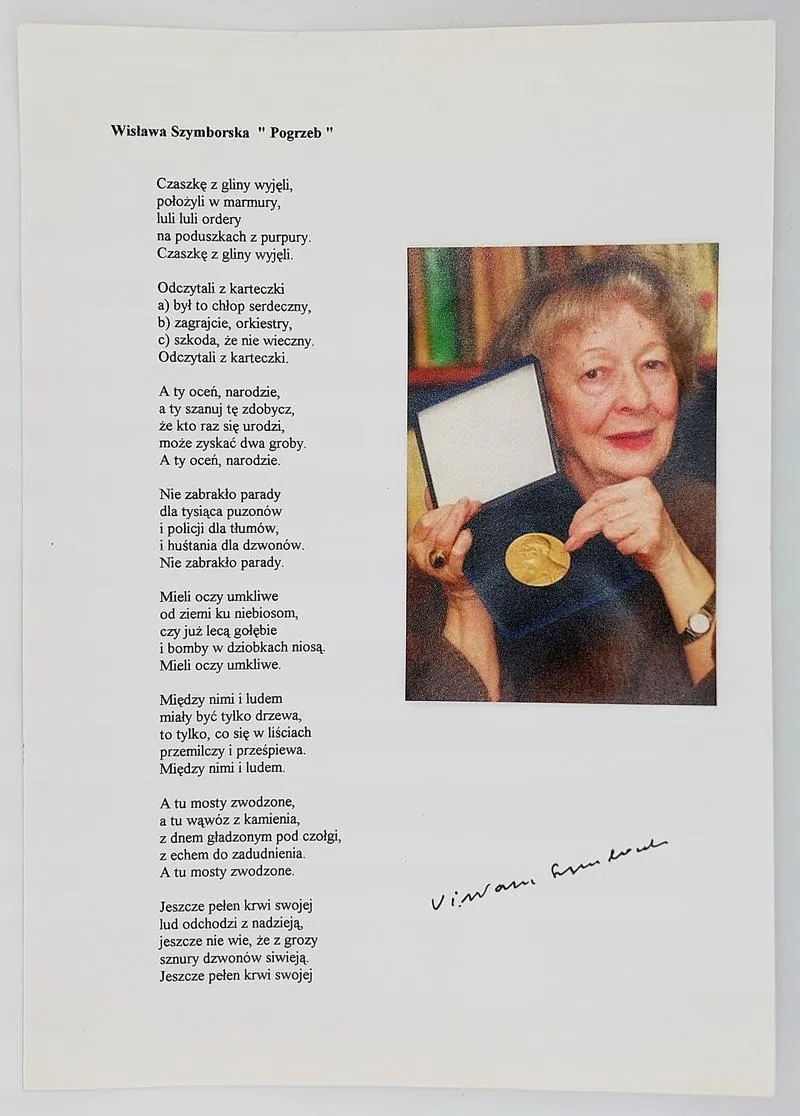 Wisława Szymborska " Pogrzeb "
Czaszkę z gliny wyjęli,
położyli w marmury,
luli luli ordery
na poduszkach z purpury.
Czaszkę z gliny wyjęli.
Odczytali z karteczki
a) był to chłop serdeczny,
b) zagrajcie, orkiestry,
c) szkoda, że nie wieczny.
Odczytali z karteczki.
A ty oceń, narodzie,
a ty szanuj tę zdobycz,
że kto raz się urodzi,
może zyskać dwa groby.
A ty oceń, narodzie.
Nie zabrakło parady
dla tysiąca puzonów
i policji dla tłumów,
i huśtania dla dzwonów.
Nie zabrakło parady.
Mieli oczy umkliwe
od ziemi ku niebiosom,
czy już lecą gołębie
i bomby w dziobkach niosą.
Mieli oczy umkliwe.
Między nimi i ludem
miały być tylko drzewa,
to tylko, co się w liściach
przemilczy i prześpiewa.
Między nimi i ludem.
A tu mosty zwodzone,
a tu wąwóz z kamienia,
z dnem gładzonym pod czołgi,
z echem do zadudnienia.
A tu mosty zwodzone.
Jeszcze pełen krwi swojej
lud odchodzi z nadzieją,
jeszcze nie wie, że z grozy
sznury dzwonów siwieją.
Jeszcze pełen krwi swojej
Wisława Szymborska